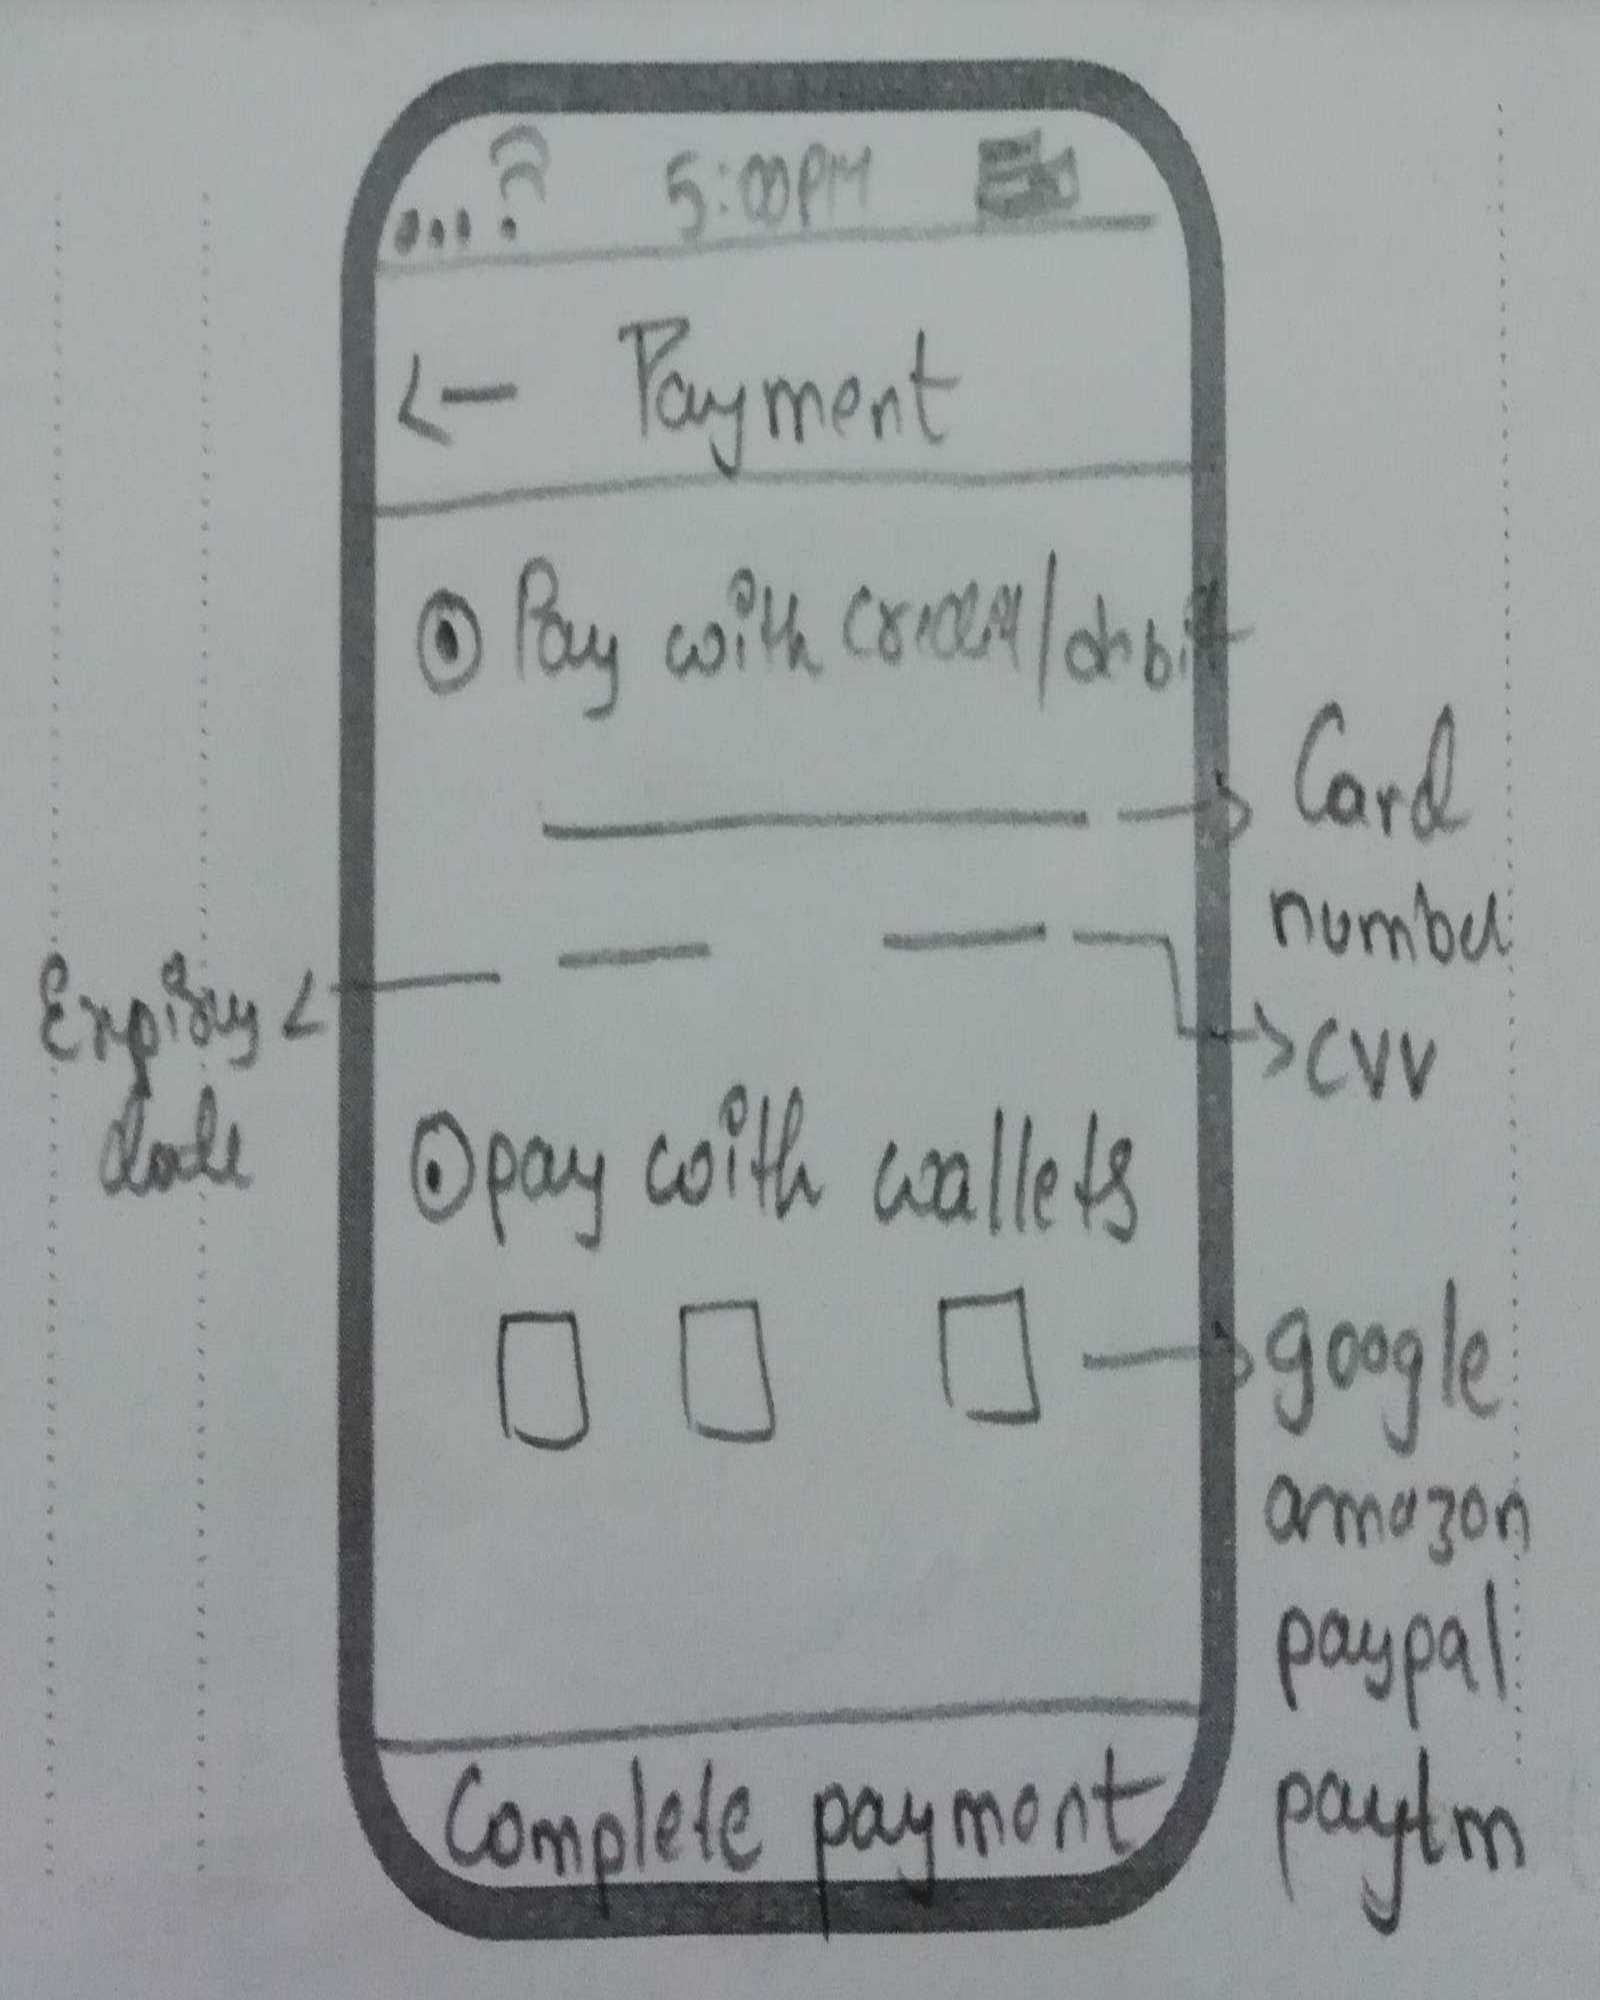 5:00PM
Payment
Pay with credit/debit
Card
number
Expiry
date
CVV
pay with wallets
google
amazon
paypal
paytm
Complete payment